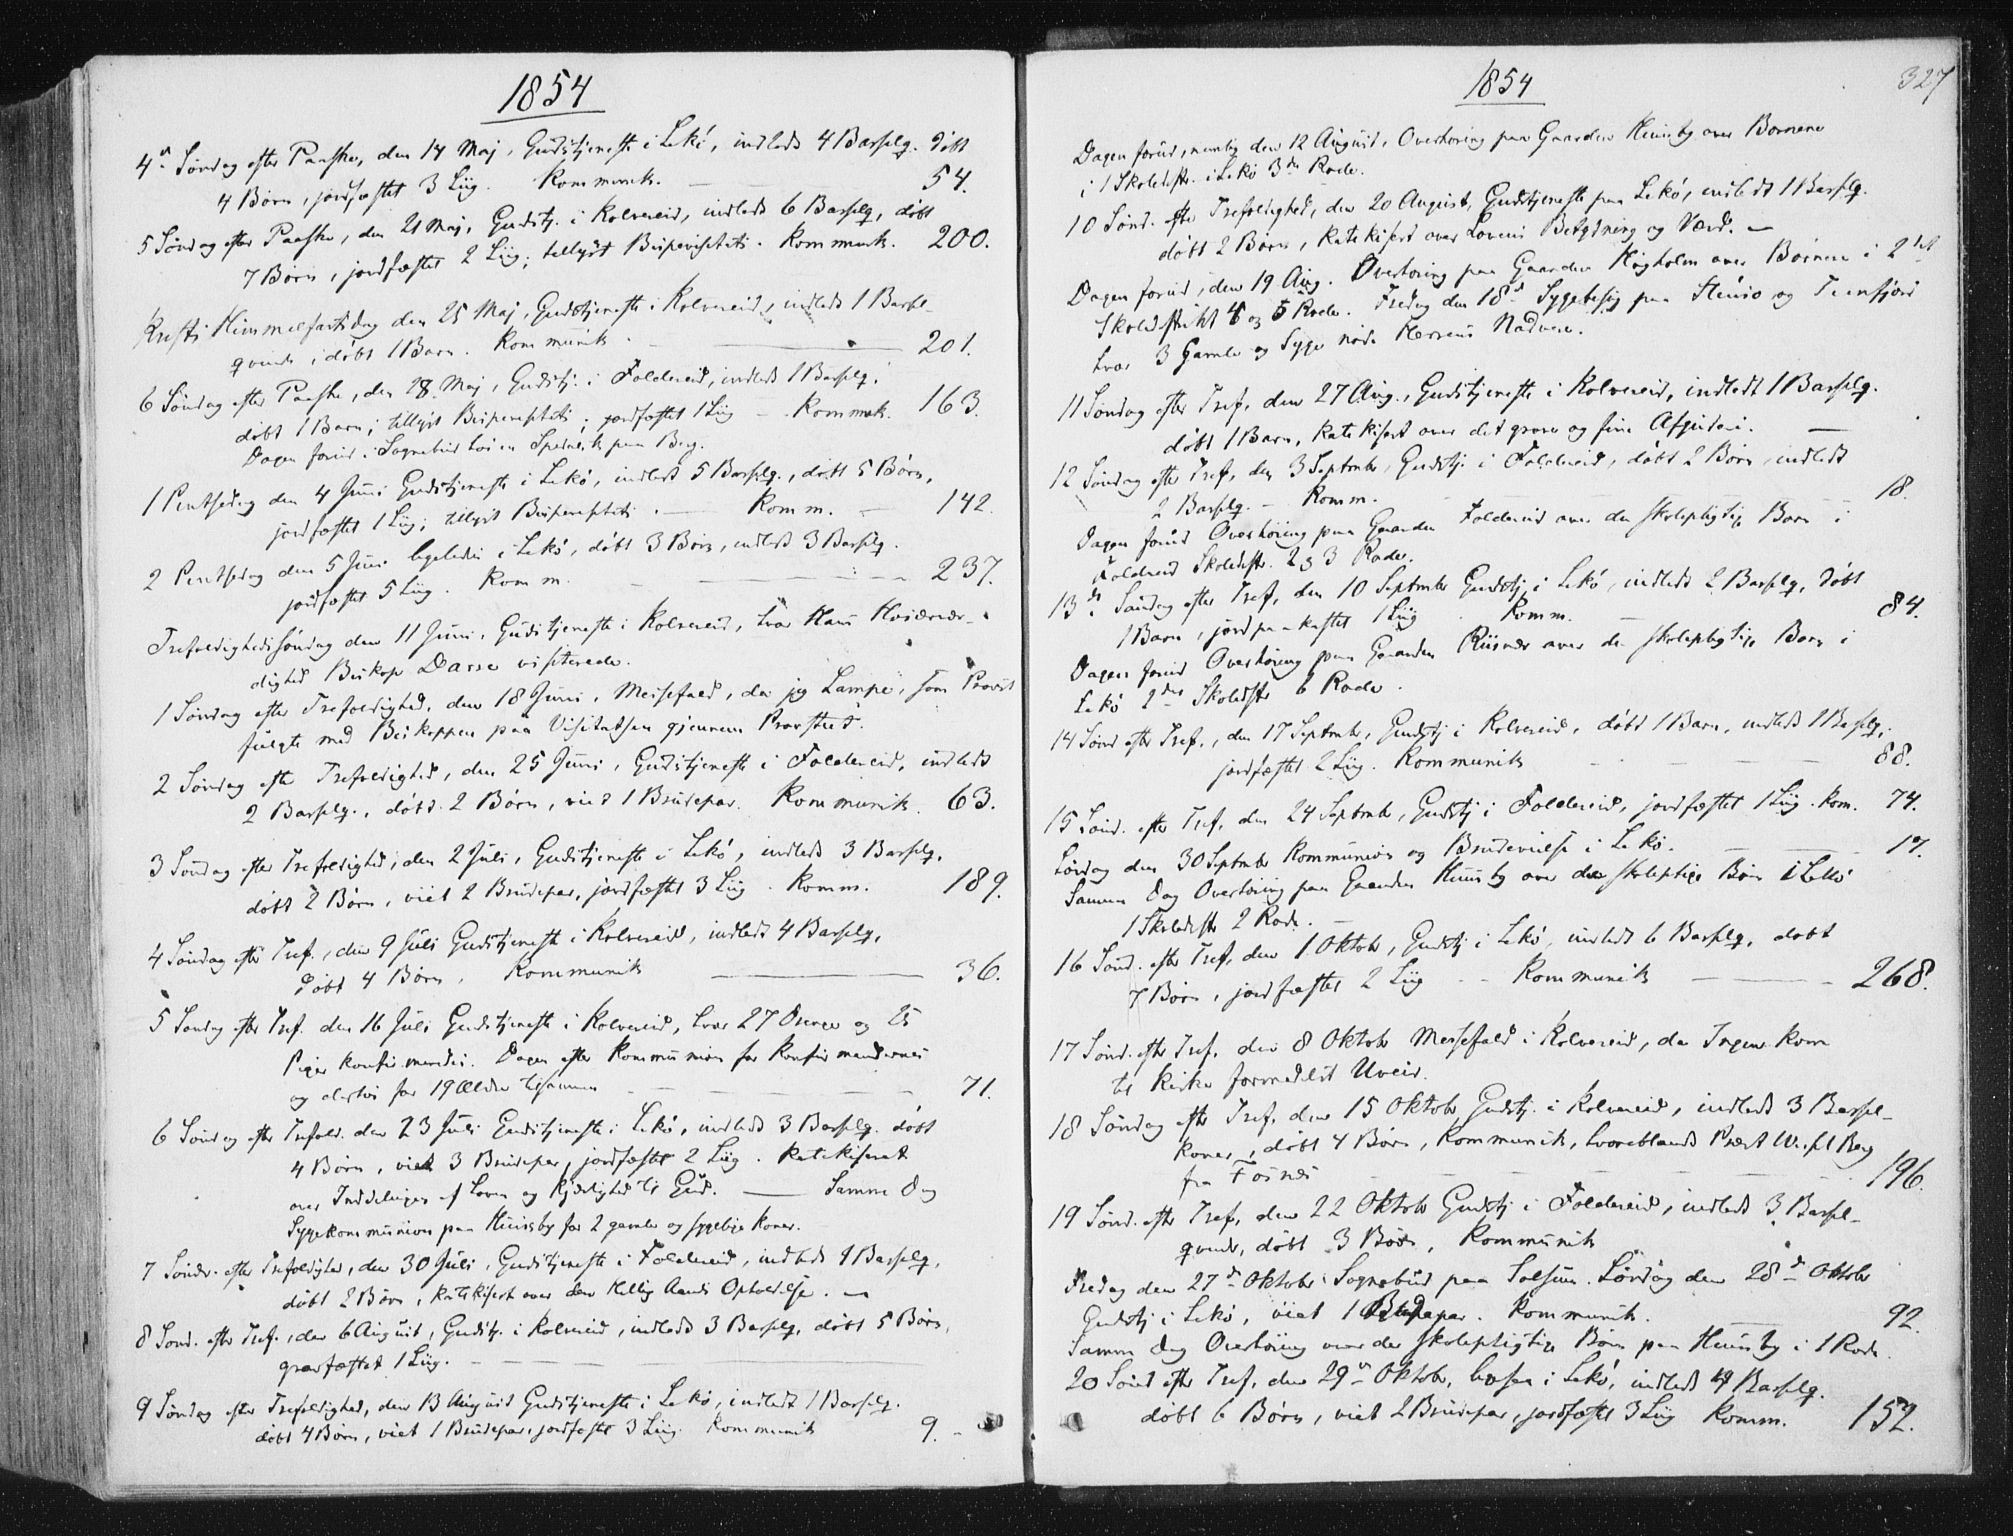 1854
4de Søndag efter Paaske, den 14 Maj, Gudstjeneste i Lekø, indledt 4 Barselq. døbt
4 Børn, jordfæstet 3 Liig. Kommunik. 54.
5 Søndag efter Paaske, den 21 Maj, Gudstj. i Kolvereid, indledt 6 Barselq, døbt
7 Børn, jordfæstet 2 Liig; tellyst Bispevisitats. Kommunk. 200.
Kristi Himmelfartsdag den 25 Maj, Gudstjeneste i Kolvereid, indledt 1 Barsel-
qvinde, døbt 1 Barn. Kommunik 201.
6 Søndag efter Paaske, den 28 Maj, Gudstj. i Foldereid, indledt 1 Barselq.
døbt 1 Barn; tillyst Bispevisitats; jordfæstet 1 Liig - Kommunk. 163.
Dagen forud i Sognebud hos en Spedalsk paa Berg.
1 Pintsedag den 4 Juni Gudstjeneste i Lekø, indledt 5 Barselq., døbt 5 Børn,
jordfæstet 1 Liig; tillyst Bispevisitats. - Komm. - 142.
2 Pintsedag den 5 Juni ligeledes i Lekø, døbt 3 Børn, indledt 3 Barselq.
jordfæstet 5 Liig. Komm. 237.
Trefoldighedssøndag den 11 Juni, Gudstjeneste i Kolvereid, hvor Hans Høiærvær-
dighed Biskop Darre visiterede.
1 Søndag efter Trefoldighed, den 18 Juni, Messefald, da jeg Lampe, som Provst
fulgte med Biskoppen paa Visitatsen gjennem Provstiet.
2 Søndag efter Trefoldighed, den 25 Juni, Gudstjeneste i Foldereid, indledt
2 Barselq., døbt 2 Børn, viet 1 Brudepar. Kommunik. 63.
3 Søndag efter Trefoldighed, den 2 Juli, Gudstjeneste i Lekø, indledt 3 Barselq.
døbt 2 Børn, viet 2 Brudepar, jordfæstet 3 Liig. Komm. 189.
4 Søndag efter Tref., den 9 Juli Gudstjeneste i Kolvereid, indledt 4 Barselq.
døbt 4 Børn, Kommunik 36.
5 Søndag efter Tref. den 16 Juli Gudstjeneste i Kolvereid, hvor 27 Drenge og 25
Piger konfirmeredes. Dagen efter Kommunion for Konfirmanderne
og desuden for 19 Ældre tilsammen 71.
6 Søndag efter Trefold. den 23 Juli Gudstjeneste i Lekø, indledt 3 Barselq. døbt
4 Børn, viet 3 Brudepar, jordfæstet 2 Liig. Katekiseret
over Inddelingen af Loven og Kjærlighed til Gud. Samme Dag
Sygekommunion paa Huusby for 2 gamle og sygelige Koner.
7 Søndr. efter Trefoldighed, den 30 Juli, Gudstjeneste i Foldereid, indledt 1 Barselq.
døbt 2 Børn, katekiseret over den Hellig Aands Opholdelse. -
8 Sønd. efter Tref., den 6 August, Gudstj. i Kolvereid, indledt 3 Barselq, døbt 5 Børn,
gravfæstet 1 Liig.
9 Søndag efter Trefoldighed, den 13 August Gudstjeneste i Lekø, indledt 1 Barselq.
døbt 4 Børn, viet 1 Brudepar, jordfæstet 3 Liig. Kommunik 9. -
1854
327
Dagen forud, nemlig den 12 August, Overhøring paa Gaarden Huusby over Børnene
i 1 Skoledistr. i Lekø 3de Rode.
10 Sønd. efter Trefoldighed, den 20 August, Gudstjeneste paa Lekø, indledt 1 Barselq.
døbt 2 Børn, katekiseret over Lovens Betydning og Værd. -
Dagen forud, den 19 Aug. Overhøring paa Gaarden Høgholm over Børnene i 2det
Skoledistrikt 4 og 5 Rode. Fredag den 18de Sygebesøg paa Steinsø og Teenfjord
hvor 3 Gamle og Syge nøde Herrens Nadvere.
11 Søndag efter Tref, den 27 Aug., Gudstjeneste i Kolvereid, indledt 1 Barselq.
døbt 1 Barn, katekiseret over det grove og fine Afguderi. -
12 Søndag efter Tref, den 3 Septmbr, Gudstj. i Foldereid, døbt 2 Børn, indledt
2 Barselq. - Komm. 18.
Dagen forud Overhøring paa Gaarden Foldereid over de skolepligtige Børn i
Foldereid Skoledistr. 2 og 3 Rode.
13de Søndag efter Tref, den 10 Septmbr Gudstj i Lekø, indledt 2 Barselq, døbt
1 Barn, jordpaakastet 1 Liig. Komm. 84.
Dagen forud Overhøring paa Gaarden Riisnæs over de skolepligtige Børn i
Lekø 2det Skoledistr 6 Rode.
14 Sønd efter Tref., den 17 Septmbr, Gudstj i Kolvereid, døbt 1 Barn, indledt 1 Barselq;
jordfæstet 2 Liig. Kommunik 88.
15 Sønd. efter Tref, den 24 Septmbr, Gudstj i Foldereid, jordfæstet 1 Liig. Kom. 74.
Lørdag den 30 Septmbr Kommunion og Brudevielse i Lekø. 17.
Samme Dag Overhøring paa Gaarden Huusby over de skoleplige Børn i Lekø
1 Skoledistr 2 Rode. -
16 Sønd. efter Tref, den 1 Oktobr, Gudstj i Lekø, indledt 6 Barselq, døbt
7 Børn, jordfæstet 2 Liig - - Kommunik 268.
17 Sønd. efter Tref, den 8 Oktobr Messefald i Kolvereid, da Ingen kom
til Kirke formedelst Uveir.
18 Søndag efter Tref, den 15 Oktobr Gudstj. i Kolvereid, indledt 3 Barsel-
koner, døbt 4 Børn, Kommunik, hvoriblandt Præst Berg
fra Fosnæs 196.
19 Sønd. efter Tref, den 22 Oktobr Gudstj i Foldereid, indledt 3 Barsel-
qvinder, døbt 3 Børn, Kommunik
Fredag den 27de Oktobr i Sognebud paa Solsem. Lørdag den 28de Oktobr
Gudstj i Lekø, viet 1 Brudepar. Kommunik. 92.
Samme Dag Overhøring over de skolepligtige Børn paa Huusby i 1 Rode.
20 Sønd efter Tref, den 29de Oktobr, i Lekø, indledt 4 Barselq.
døbt 6 Børn, viet 2 Brudepar, jordfæstet 3 Liig Komm. 152.